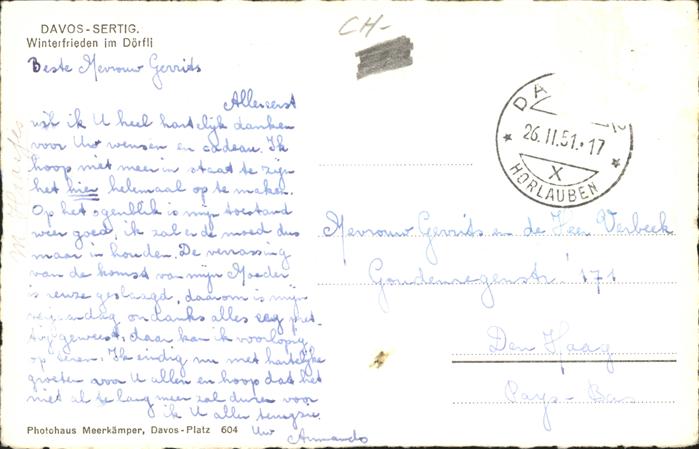 DAVOS - SERTIG.
Winterfrieden im Dörfli
CH-
Beste Mevrouw Gerrits
Allereerst
wil ik U heel hartelijk danken
voor Uw wensen en cadeau. Ik
hoop niet meer in staat te zijn
het hier helemaal op te maken.
Op het ogenblik is mijn toestand
weer goed, ik zal er de moed dus
maar in houden. De verrassing
van de komst van mijn Moeder
is reuze geslaagd, daarom is mijn
verjaardag ondanks alles erg pret-
tig geweest, daar kan ik voorlopig
op teren. Ik eindig nu met hartelijke
groeten voor U allen en hoop dat het
niet al te lang meer zal duren voor
ik U allen terugzie.
Uw
Armando
Photohaus Meerkämper, Davos-Platz 604
DA
26.II.51.-17
X
HORLAUBEN
Mevrouw Gerrits en de Heer Verbeek
Goudenregenstr. 171
Den Haag
Pays-Bas